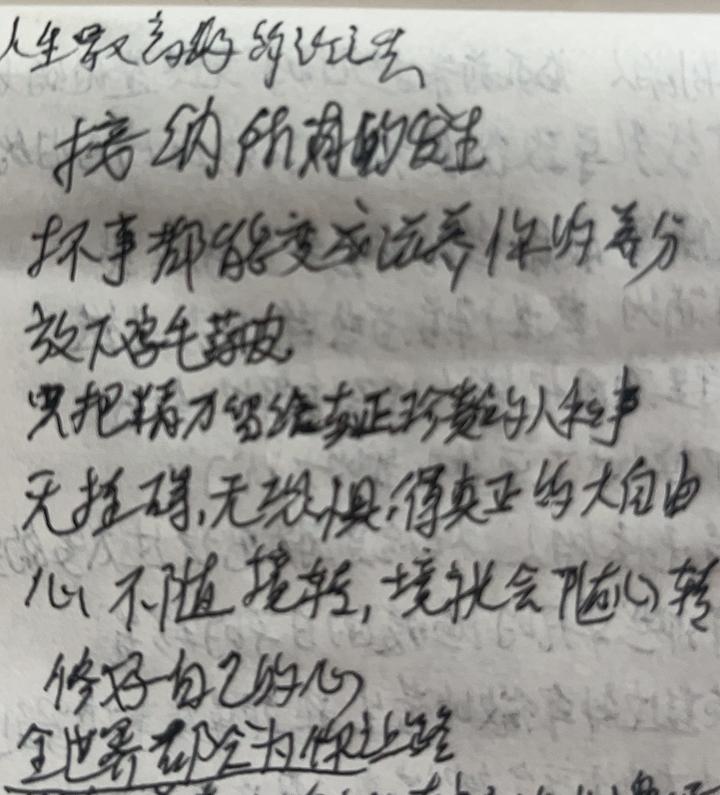 人生最高级的活法
接纳所有的发生
坏事都能变成滋养你的养分
放下鸡毛蒜皮
只把精力留给真正珍贵的人和事
无挂碍,无恐惧,得真正的大自由
心不随境转,境就会随心转
修好自己的心
全世界都会为你让路